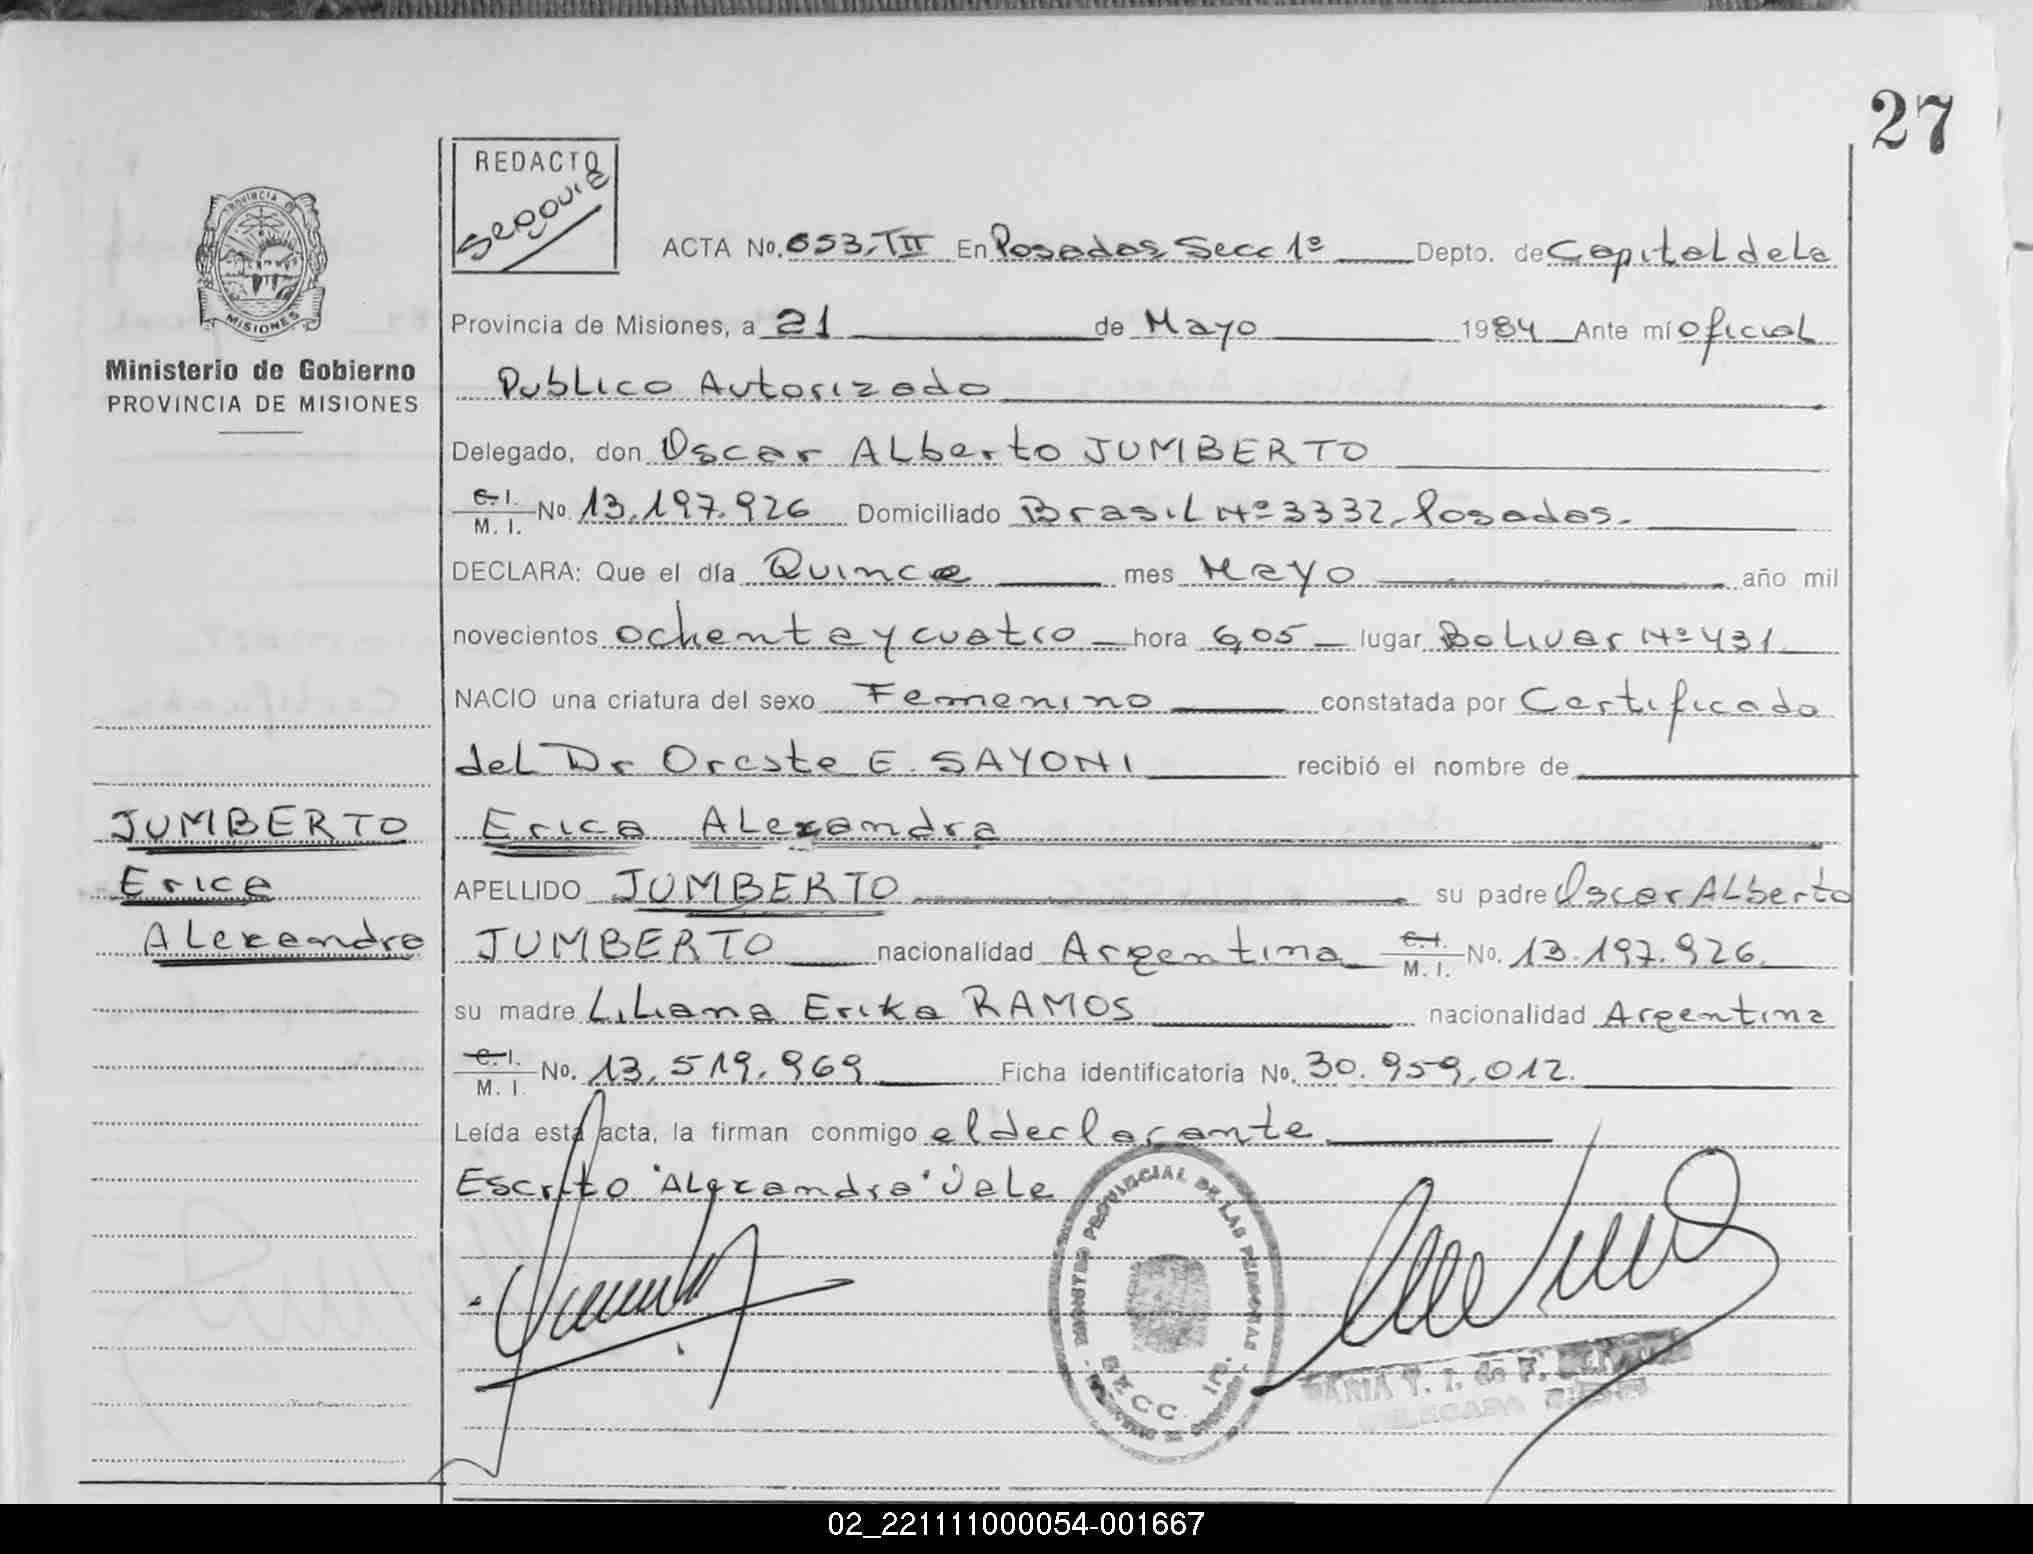 27
REDACTO
Segovia
ACTA No. 653, TII En Posadas Secc 1º Depto. de Capital de la
PROVINCIA DE
MISIONES
Ministerio de Gobierno
PROVINCIA DE MISIONES
Provincia de Misiones, a 21 de Mayo 1984 Ante mí oficial
Publico Autorizado
Delegado, don Oscar Alberto JUMBERTO
C. I. M. I. No. 13.197.926 Domiciliado Brasil Nº 3332, Posadas.
DECLARA: Que el día Quince mes Mayo año mil
novecientos ochenta y cuatro hora 6,05 lugar Bolivar Nº 431
NACIO una criatura del sexo Femenino constatada por Certificado
del Dr Oreste E. SAYONI recibió el nombre de
JUMBERTO
Erica
Alexandra
Erica Alexandra
APELLIDO JUMBERTO su padre Oscar Alberto
JUMBERTO nacionalidad Argentina C. I. M. I. No. 13.197.926
su madre Liliana Erika RAMOS nacionalidad Argentina
C. I. M. I. No. 13.519.969 Ficha identificatoria No. 30.959.012.
Leída esta acta, la firman conmigo el declarante
Escrito "Alexandra" Vale
REGISTRO PROVINCIAL DE LAS PERSONAS
SECC. 1ra.
MARIA T. I. de F.
DELEGADO
02_221111000054-001667